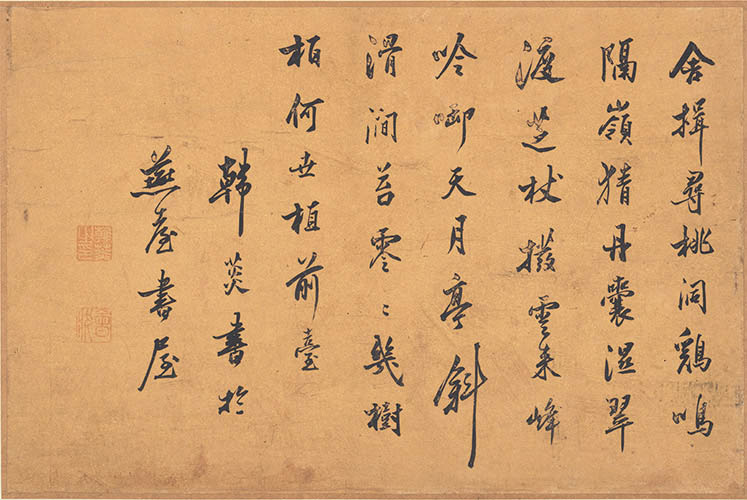 舍揖尋桃洞鷄鳴
隔嶺猜丹囊濕翠
渡芝杖撥雲來峰
吟啣天月亭斜
滑澗苔零〻幾樹
栢何世植前臺
韓菼書於
燕臺書屋